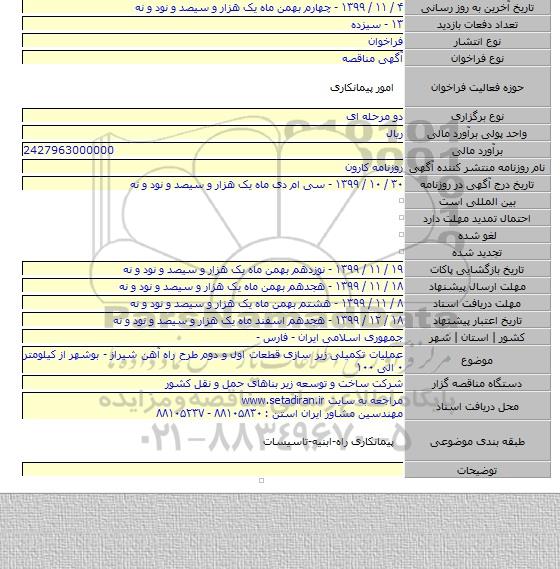 تاریخ آخرین به روز رسانی ۴ / ۱۱ / ۱۳۹۹ - چهارم بهمن ماه یک هزار و سیصد و نود و نه
تعداد دفعات بازدید ۱۳ - سیزده
نوع انتشار فراخوان
نوع فراخوان آگهی مناقصه
حوزه فعالیت فراخوان امور پیمانکاری
نوع برگزاری دو مرحله ای
واحد پولی برآورد مالی ریال
برآورد مالی 2427963000000
نام روزنامه منتشر کننده آگهی روزنامه کارون
تاریخ درج آگهی در روزنامه ۳۰ / ۱۰ / ۱۳۹۹ - سی ام دی ماه یک هزار و سیصد و نود و نه
بین المللی است
احتمال تمدید مهلت دارد
لغو شده
تجدید شده
تاریخ بازگشایی پاکات ۱۹ / ۱۱ / ۱۳۹۹ - نوزدهم بهمن ماه یک هزار و سیصد و نود و نه
مهلت ارسال پیشنهاد ۱۸ / ۱۱ / ۱۳۹۹ - هجدهم بهمن ماه یک هزار و سیصد و نود و نه
مهلت دریافت اسناد ۸ / ۱۱ / ۱۳۹۹ - هشتم بهمن ماه یک هزار و سیصد و نود و نه
تاریخ اعتبار پیشنهاد ۱۸ / ۱۲ / ۱۳۹۹ - هجدهم اسفند ماه یک هزار و سیصد و نود و نه
کشور | استان | شهر جمهوری اسلامی ایران - فارس -
موضوع عملیات تکمیلی زیر سازی قطعات اول و دوم طرح راه آهن شیراز - بوشهر از کیلومتر
۰ الی ۱۰۰
دستگاه مناقصه گزار شرکت ساخت و توسعه زیر بناهای حمل و نقل کشور
محل دریافت اسناد مراجعه به سایت www.setadiran.ir
مهندسین مشاور ایران استن : ۸۸۱۰۵۸۳۰ - ۸۸۱۰۵۲۳۷
پایگاه اطلاع رسانی مناقصه و مزایده
۰۲۱-۸۸۳۴۹۶۷۰-۵
طبقه بندی موضوعی پیمانکاری راه-ابنیه-تاسیسات
توضیحات